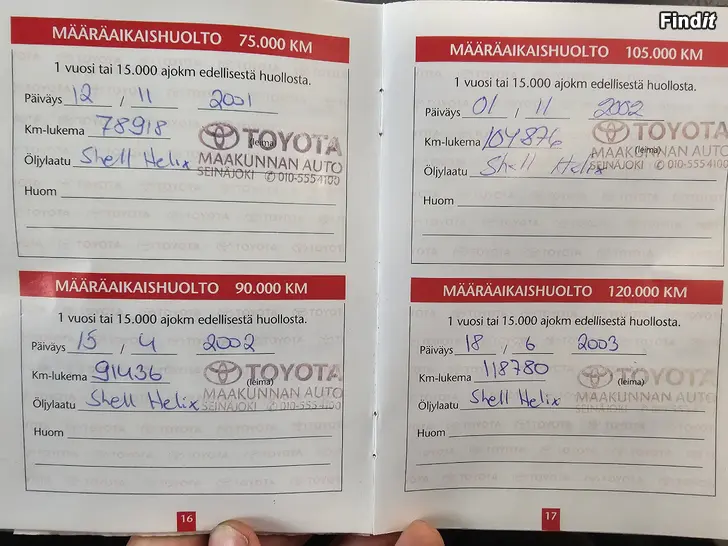 Findit
MÄÄRÄAIKAISHUOLTO 75.000 KM
1 vuosi tai 15.000 ajokm edellisestä huollosta.
Päiväys 12 / 11 2001
Km-lukema 78918
TOYOTA
(leima)
Öljylaatu Shell Helix
MAAKUNNAN AUTO
SEINÄJOKI ✆ 010-5554100
Huom
MÄÄRÄAIKAISHUOLTO 90.000 KM
1 vuosi tai 15.000 ajokm edellisestä huollosta.
Päiväys 15 / 4 2002
Km-lukema 91436
TOYOTA
(leima)
Öljylaatu Shell Helix
MAAKUNNAN AUTO
SEINÄJOKI ✆ 010-5554100
Huom
16
MÄÄRÄAIKAISHUOLTO 105.000 KM
1 vuosi tai 15.000 ajokm edellisestä huollosta.
Päiväys 01 / 11 2002
Km-lukema 104876
TOYOTA
(leima)
Öljylaatu Shell Helix
MAAKUNNAN AUTO
SEINÄJOKI ✆ 010-5554100
Huom
MÄÄRÄAIKAISHUOLTO 120.000 KM
1 vuosi tai 15.000 ajokm edellisestä huollosta.
Päiväys 18 / 6 2003
Km-lukema 118780
TOYOTA
(leima)
Öljylaatu Shell Helix
MAAKUNNAN AUTO
SEINÄJOKI ✆ 010-5554100
Huom
17